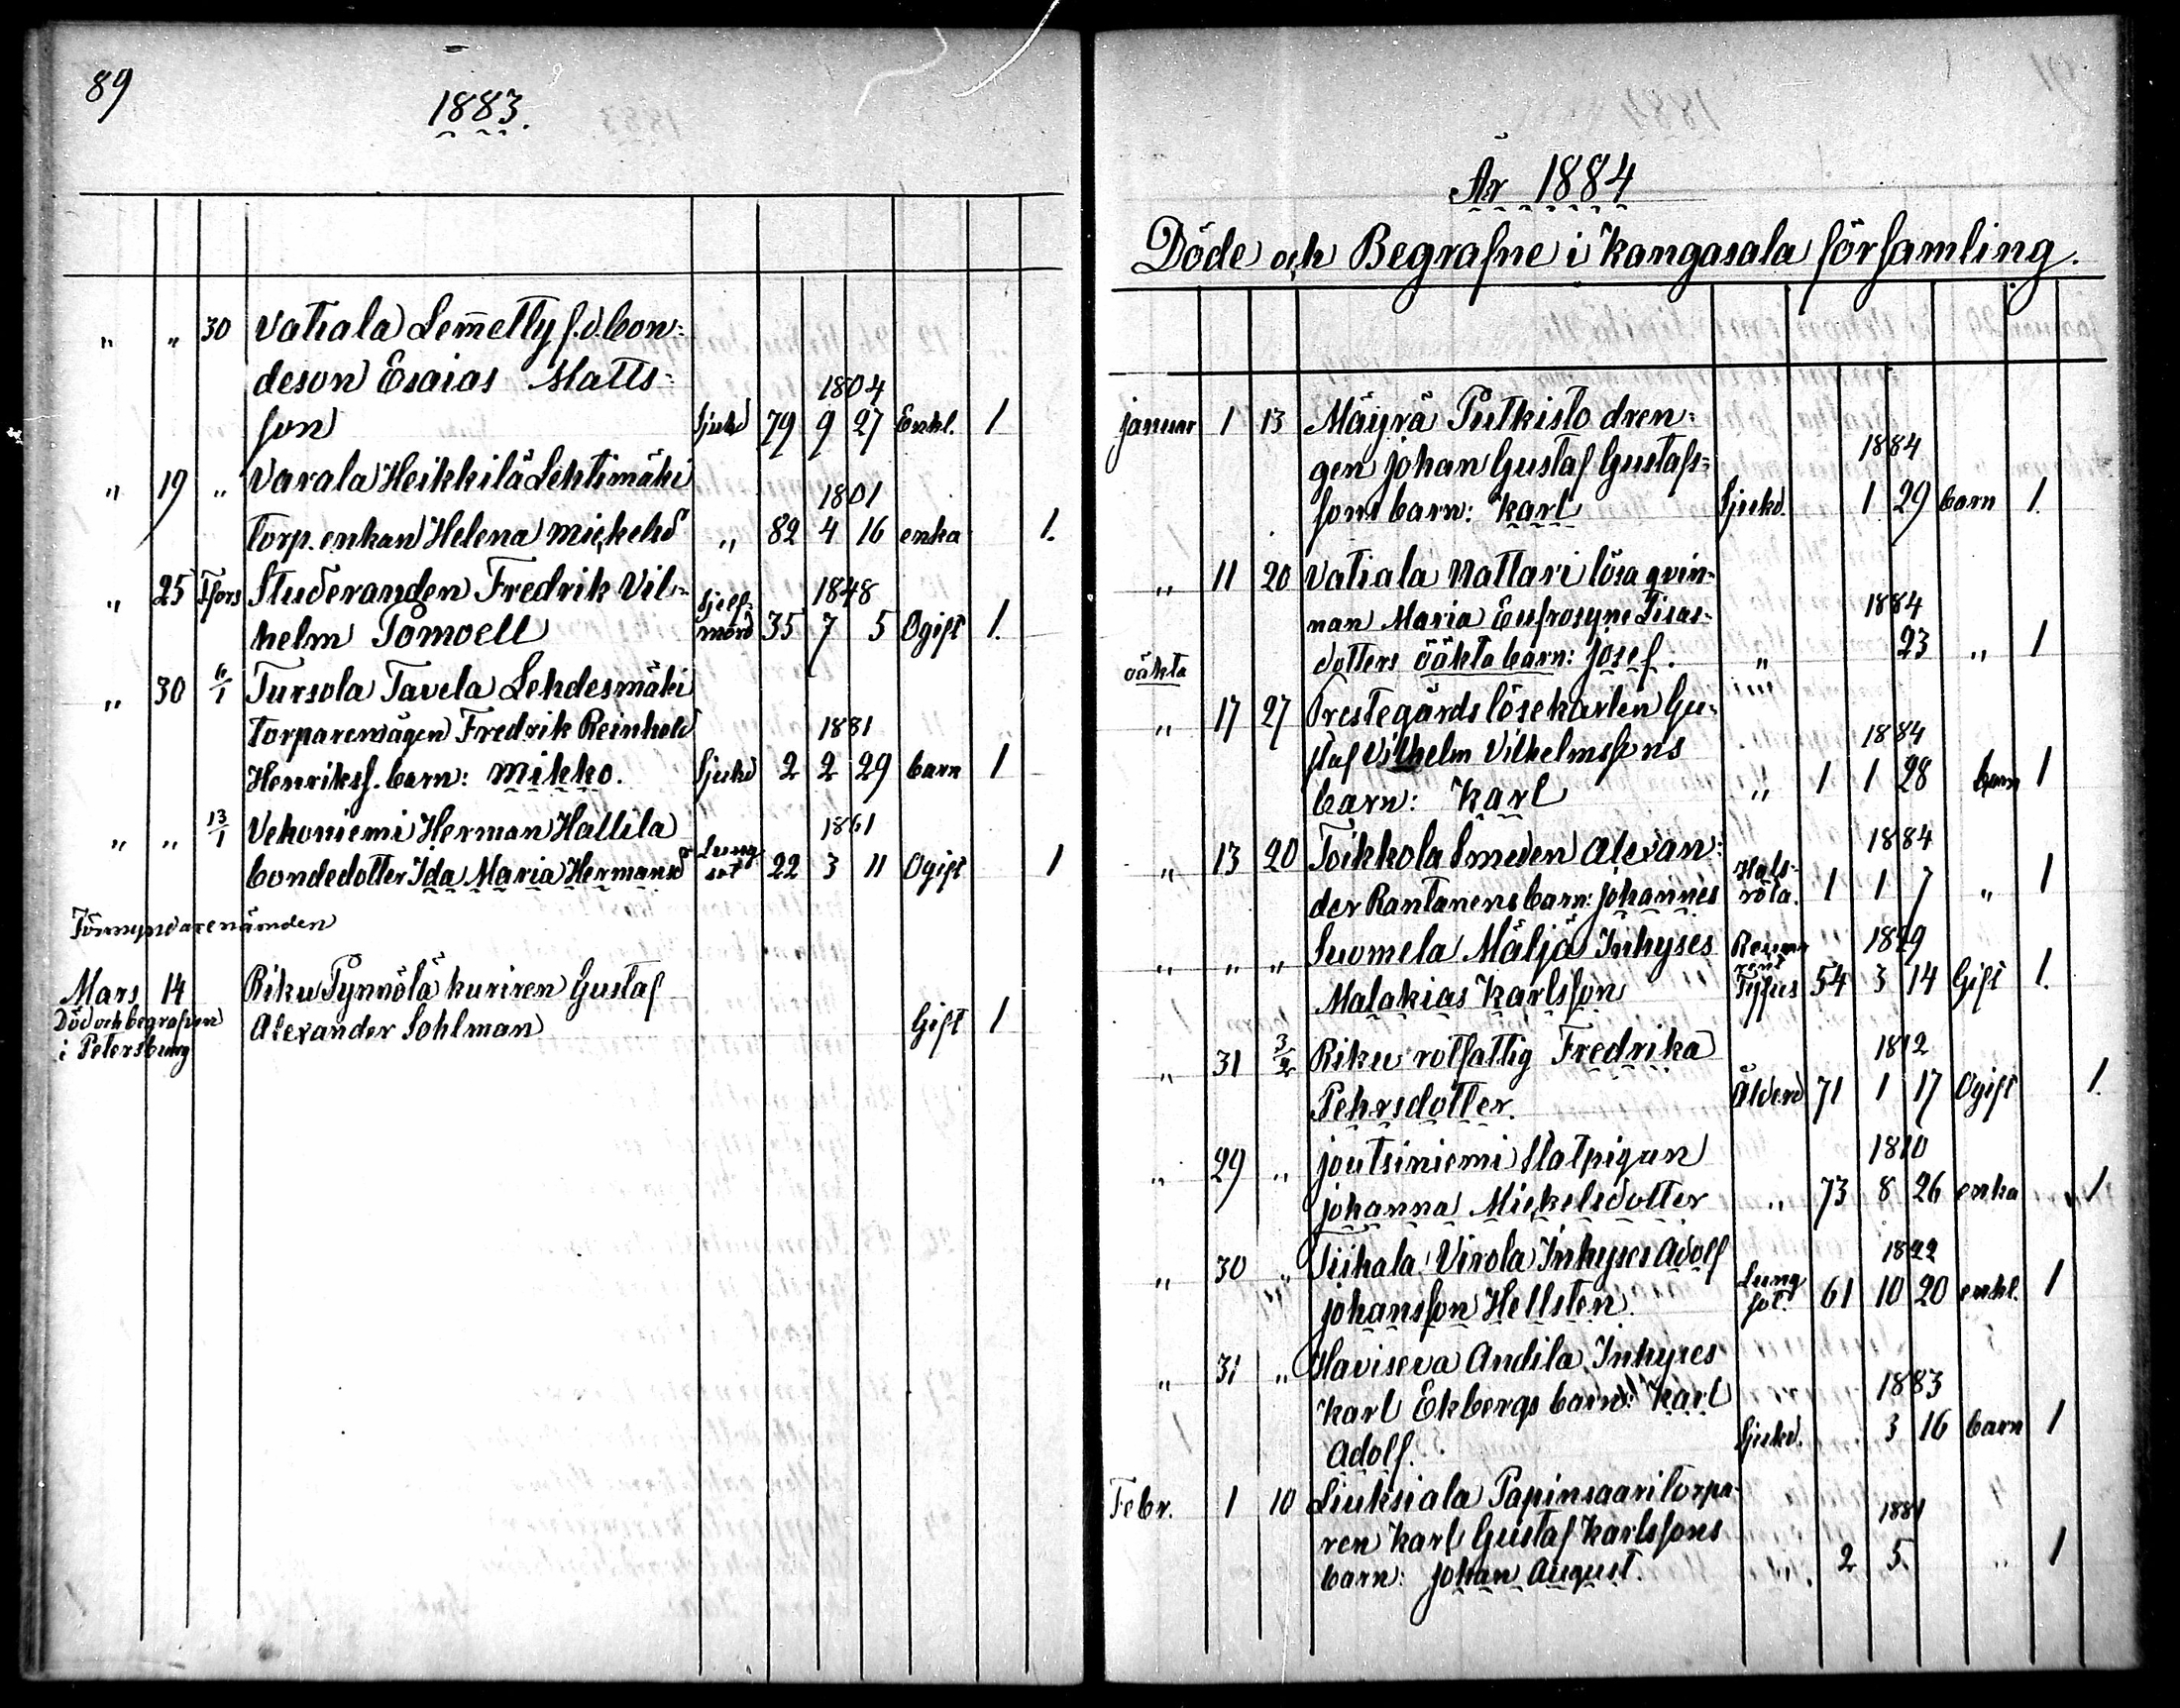 89
1883.
" " 30 Vatiala Lem̄etty f.d. bon-
deson Esaias Matts- 1804
son Sjukd 79 9 27 Enkl. 1
" 19 " Varala Heikkilä Lehtimäki 1801
Torp. enkan Helena Mickelsd " 82 4 16 enka 1.
" 25 Tfors Studeranden Fredrik Vil- Sjelf- 1848
helm Tomvell mord 35 7 5 Ogift 1.
" 30 6/1 Tursola Tavela Lehdesmäki
Torparemågen Fredrik Reinhold 1881
Henrikss. barn: Mikko. Sjukd 2 2 29 barn 1
" " 13/1 Vehoniemi Herman Hallila Lung 1861
bondedotter Ida Maria Hermansd sot 22 3 11 Ogift 1
Förmyndarenämnden
Mars 14 Riku Pynnölä kuriren Gustaf
Död och begrafven Alexander Sohlman Gift 1
i Petersburg
År 1884
Döde och Begrafne i Kangasala församling.
januar 1 13 Mäyrä Putkisto dren-
gen johan Gustaf Gustafs- 1884
sons barn: Karl Sjukd. 1 29 barn 1.
" 11 20 Vatiala Nattari lösa qvin-
nan Maria Eufrosyne Lisas- 1884
oäkta dotters oäkta barn: josef. " 23 " 1
" 17 27 Prestegårds lösekarlen Gu-
staf Vilhelm Vilhelmssons 1884
barn: Karl " 1 1 28 barn 1
" 13 20 Toikkola Smeden Alexan- Hals- 1884
der Rantanens barn: johannes röta. 1 1 7 " 1
" " " Suomela Mäljä Inhyses 1829
Malakias Karlsson Tyfus 54 3 14 Gift 1.
" 31 3/2 Riku rotfattig Fredrika 1812
Pehrsdotter. Ålderd 71 1 17 Ogift 1.
" 29 " joutsiniemi Statpigan 1810
johanna Mickelsdotter " 73 8 26 enka 1
" 30 " Tiihala Virola Inhyses Adolf Lung 1822
johansson Hellsten. sot. 61 10 20 enkl. 1
" 31 " Haviseva Andila Inhyses
Karl Ekbergs barn: Karl 1883
Adolf. Sjukd. 3 16 barn 1
Febr. 1 10 Liuksiala Papinsaari torpa-
ren Karl Gustaf Karlssons 1881
barn: johan August. 2 5 " 1